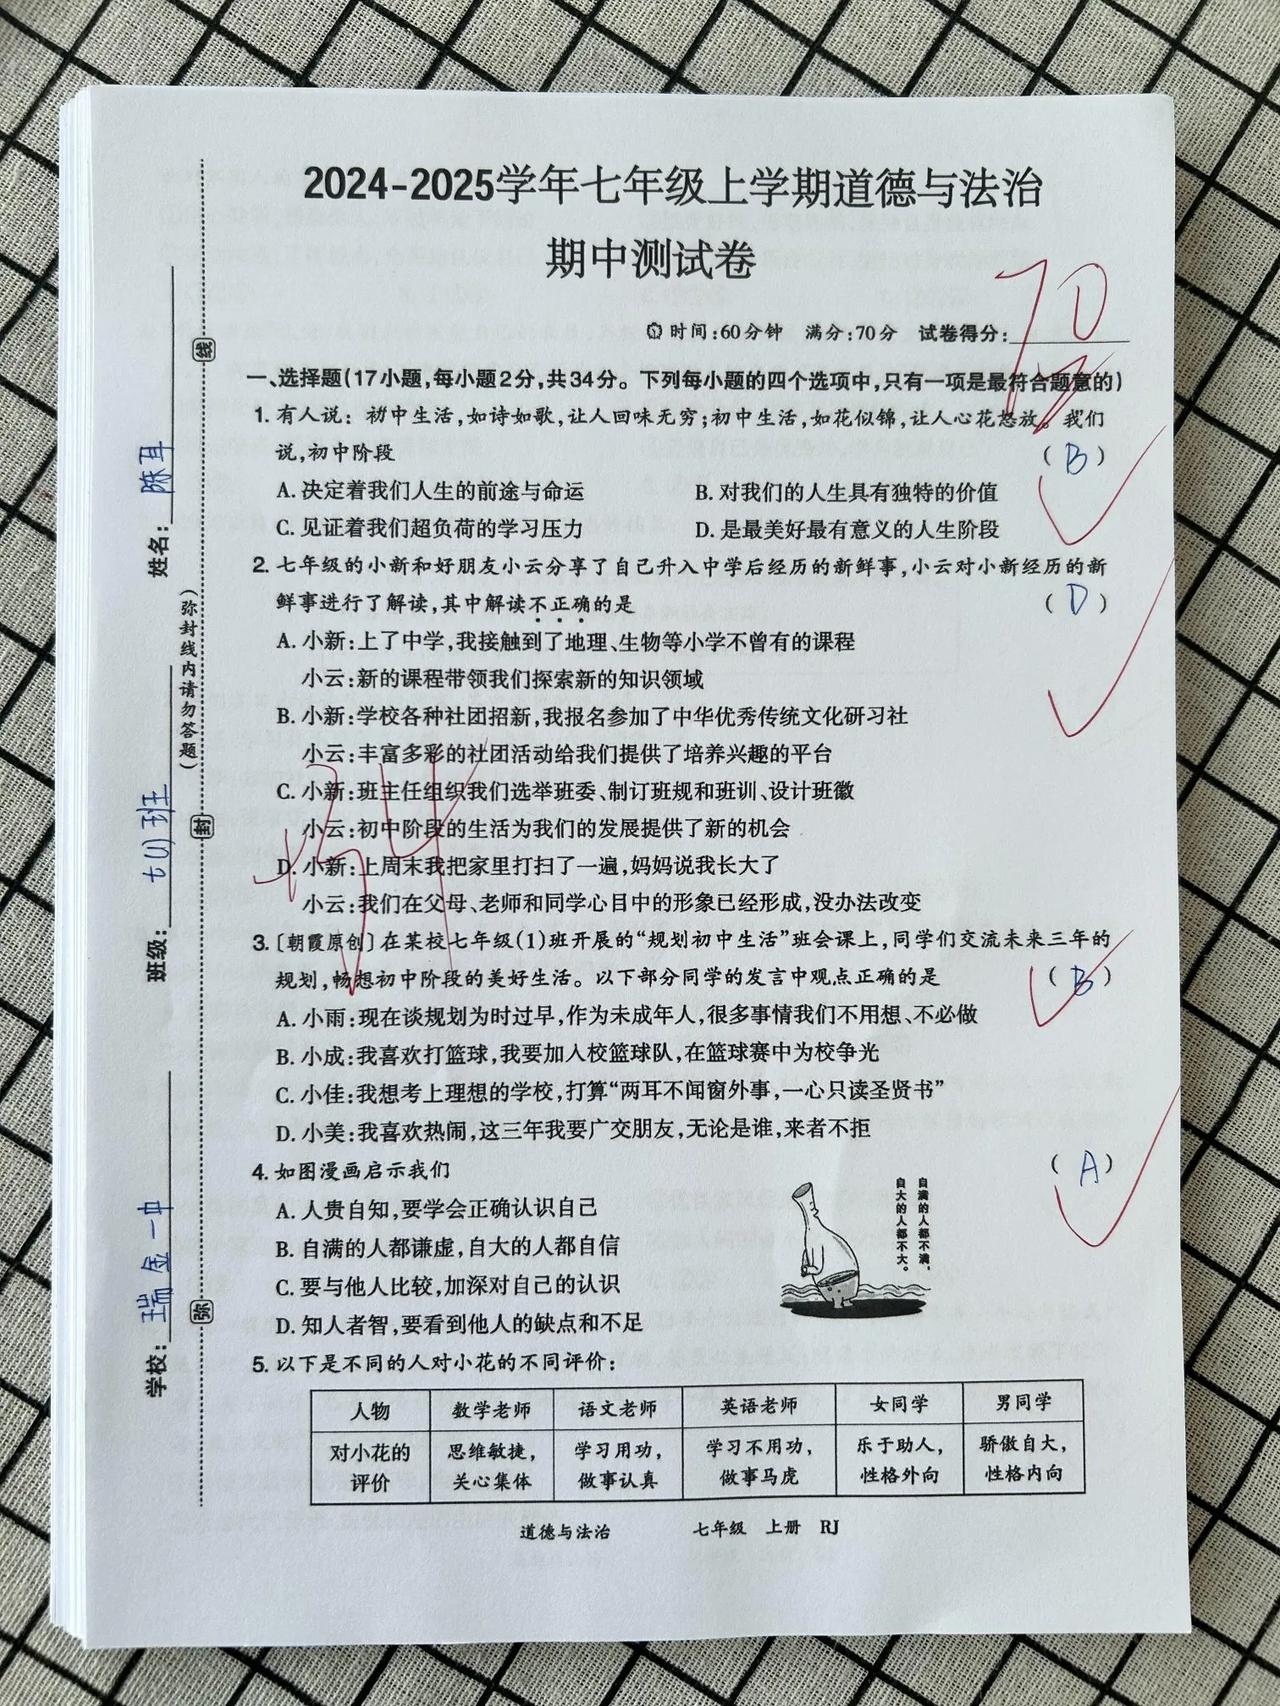 2024-2025学年七年级上学期道德与法治
期中测试卷
时间:60分钟 满分:70分 试卷得分:70
一、选择题(17小题,每小题2分,共34分。下列每小题的四个选项中,只有一项是最符合题意的)
1. 有人说:初中生活,如诗如歌,让人回味无穷;初中生活,如花似锦,让人心花怒放。我们
说,初中阶段 (B)
A. 决定着我们人生的前途与命运 B. 对我们的人生具有独特的价值
C. 见证着我们超负荷的学习压力 D. 是最美好最有意义的人生阶段
2. 七年级的小新和好朋友小云分享了自己升入中学后经历的新鲜事,小云对小新经历的新
鲜事进行了解读,其中解读不正确的是 (D)
A. 小新:上了中学,我接触到了地理、生物等小学不曾有的课程
小云:新的课程带领我们探索新的知识领域
B. 小新:学校各种社团招新,我报名参加了中华优秀传统文化研习社
小云:丰富多彩的社团活动给我们提供了培养兴趣的平台
C. 小新:班主任组织我们选举班委、制订班规和班训、设计班徽
小云:初中阶段的生活为我们的发展提供了新的机会
D. 小新:上周末我把家里打扫了一遍,妈妈说我长大了
小云:我们在父母、老师和同学心目中的形象已经形成,没办法改变
+34
3. [朝霞原创]在某校七年级(1)班开展的“规划初中生活”班会课上,同学们交流未来三年的
规划,畅想初中阶段的美好生活。以下部分同学的发言中观点正确的是 (B)
A. 小雨:现在谈规划为时过早,作为未成年人,很多事情我们不用想、不必做
B. 小成:我喜欢打篮球,我要加入校篮球队,在篮球赛中为校争光
C. 小佳:我想考上理想的学校,打算“两耳不闻窗外事,一心只读圣贤书”
D. 小美:我喜欢热闹,这三年我要广交朋友,无论是谁,来者不拒
4. 如图漫画启示我们 (A)
A. 人贵自知,要学会正确认识自己
B. 自满的人都谦虚,自大的人都自信
C. 要与他人比较,加深对自己的认识
D. 知人者智,要看到他人的缺点和不足
自满的人都不满,
自大的人都不大。
5. 以下是不同的人对小花的不同评价:
人物 数学老师 语文老师 英语老师 女同学 男同学
对小花的 思维敏捷, 学习用功, 学习不用功, 乐于助人, 骄傲自大,
评价 关心集体 做事认真 做事马虎 性格外向 性格内向
道德与法治 七年级 上册 RJ
学校:瑞金一中
班级:七(1)班
姓名:
(弥封线内请勿答题)
弥
封
线